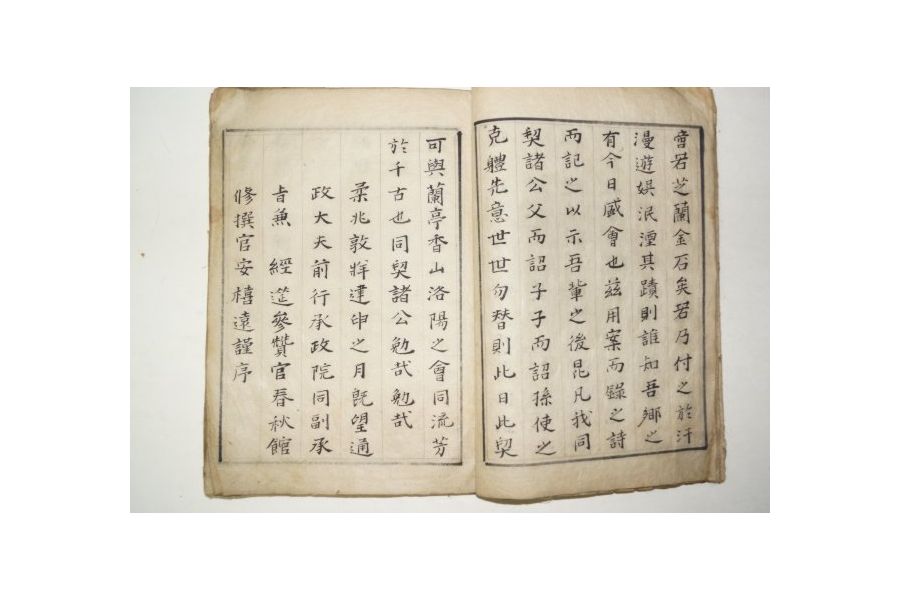 會若芝蘭金石矣若乃付之於汗
漫遊娛泯湮其蹟則誰知吾鄕之
有今日盛會也玆用案而錄之詩
而記之以示吾輩之後昆凡我同
契諸公父而詔子子而詔孫使之
克體先意世世勿替則此日此契
可與蘭亭香山洛陽之會同流芳
於千古也同契諸公勉哉勉哉
柔兆敦牂建申之月旣望通
政大夫前行承政院同副承
旨兼 經筵參贊官春秋館
修撰官安橲遠謹序